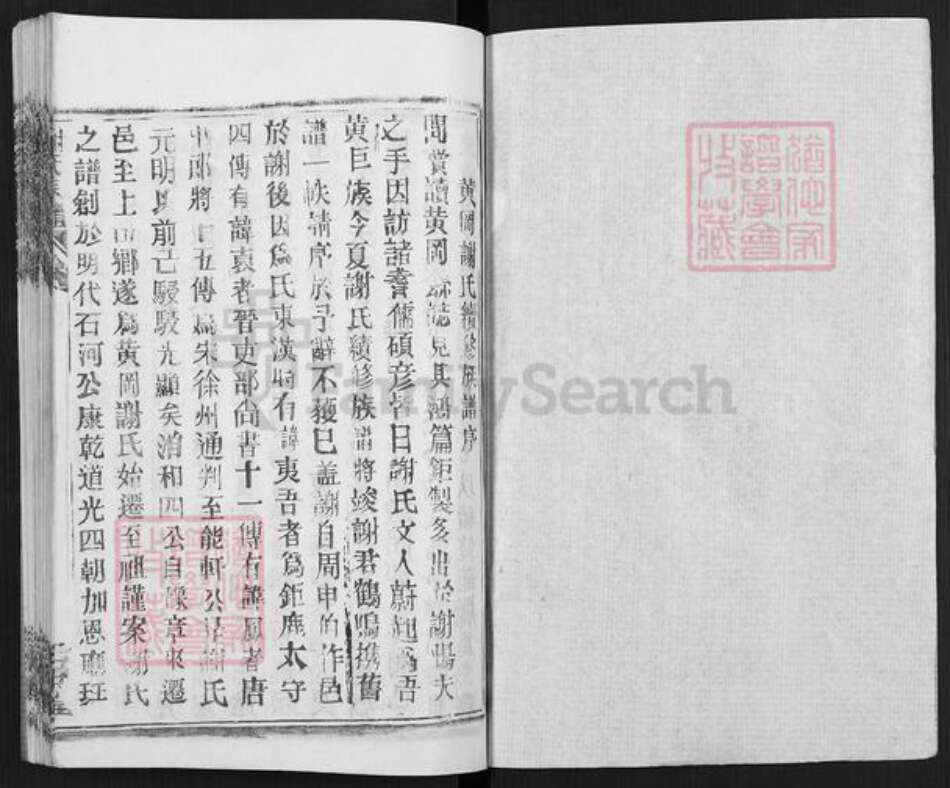 黃岡謝氏續修族譜序
間嘗讀黃岡 誌見其鴻篇鉅製多出於謝 大
之手因訪諸耆儒碩彦皆曰謝氏文人蔚起爲吾
黃巨族今夏謝氏續修族譜將竣謝君鶴鳴携舊
譜一帙請序於予辭不獲已盖謝自周申伯作邑
於謝後因爲氏東漢時有諱夷吾者爲鉅鹿太守
四傳有諱袁者晉吏部尙書十一傳有諱 者唐
中郎將 五傳爲宋徐州通判至能軒公是謝氏
元明以前已駸駸光顯矣洎和四公自 章來遷
邑至上 鄉遂爲黃岡謝氏始遷至祖謹案謝氏
之譜創於明代石河公康乾道光四朝加恩 班
猶他家譜學會收藏
FamilySearch